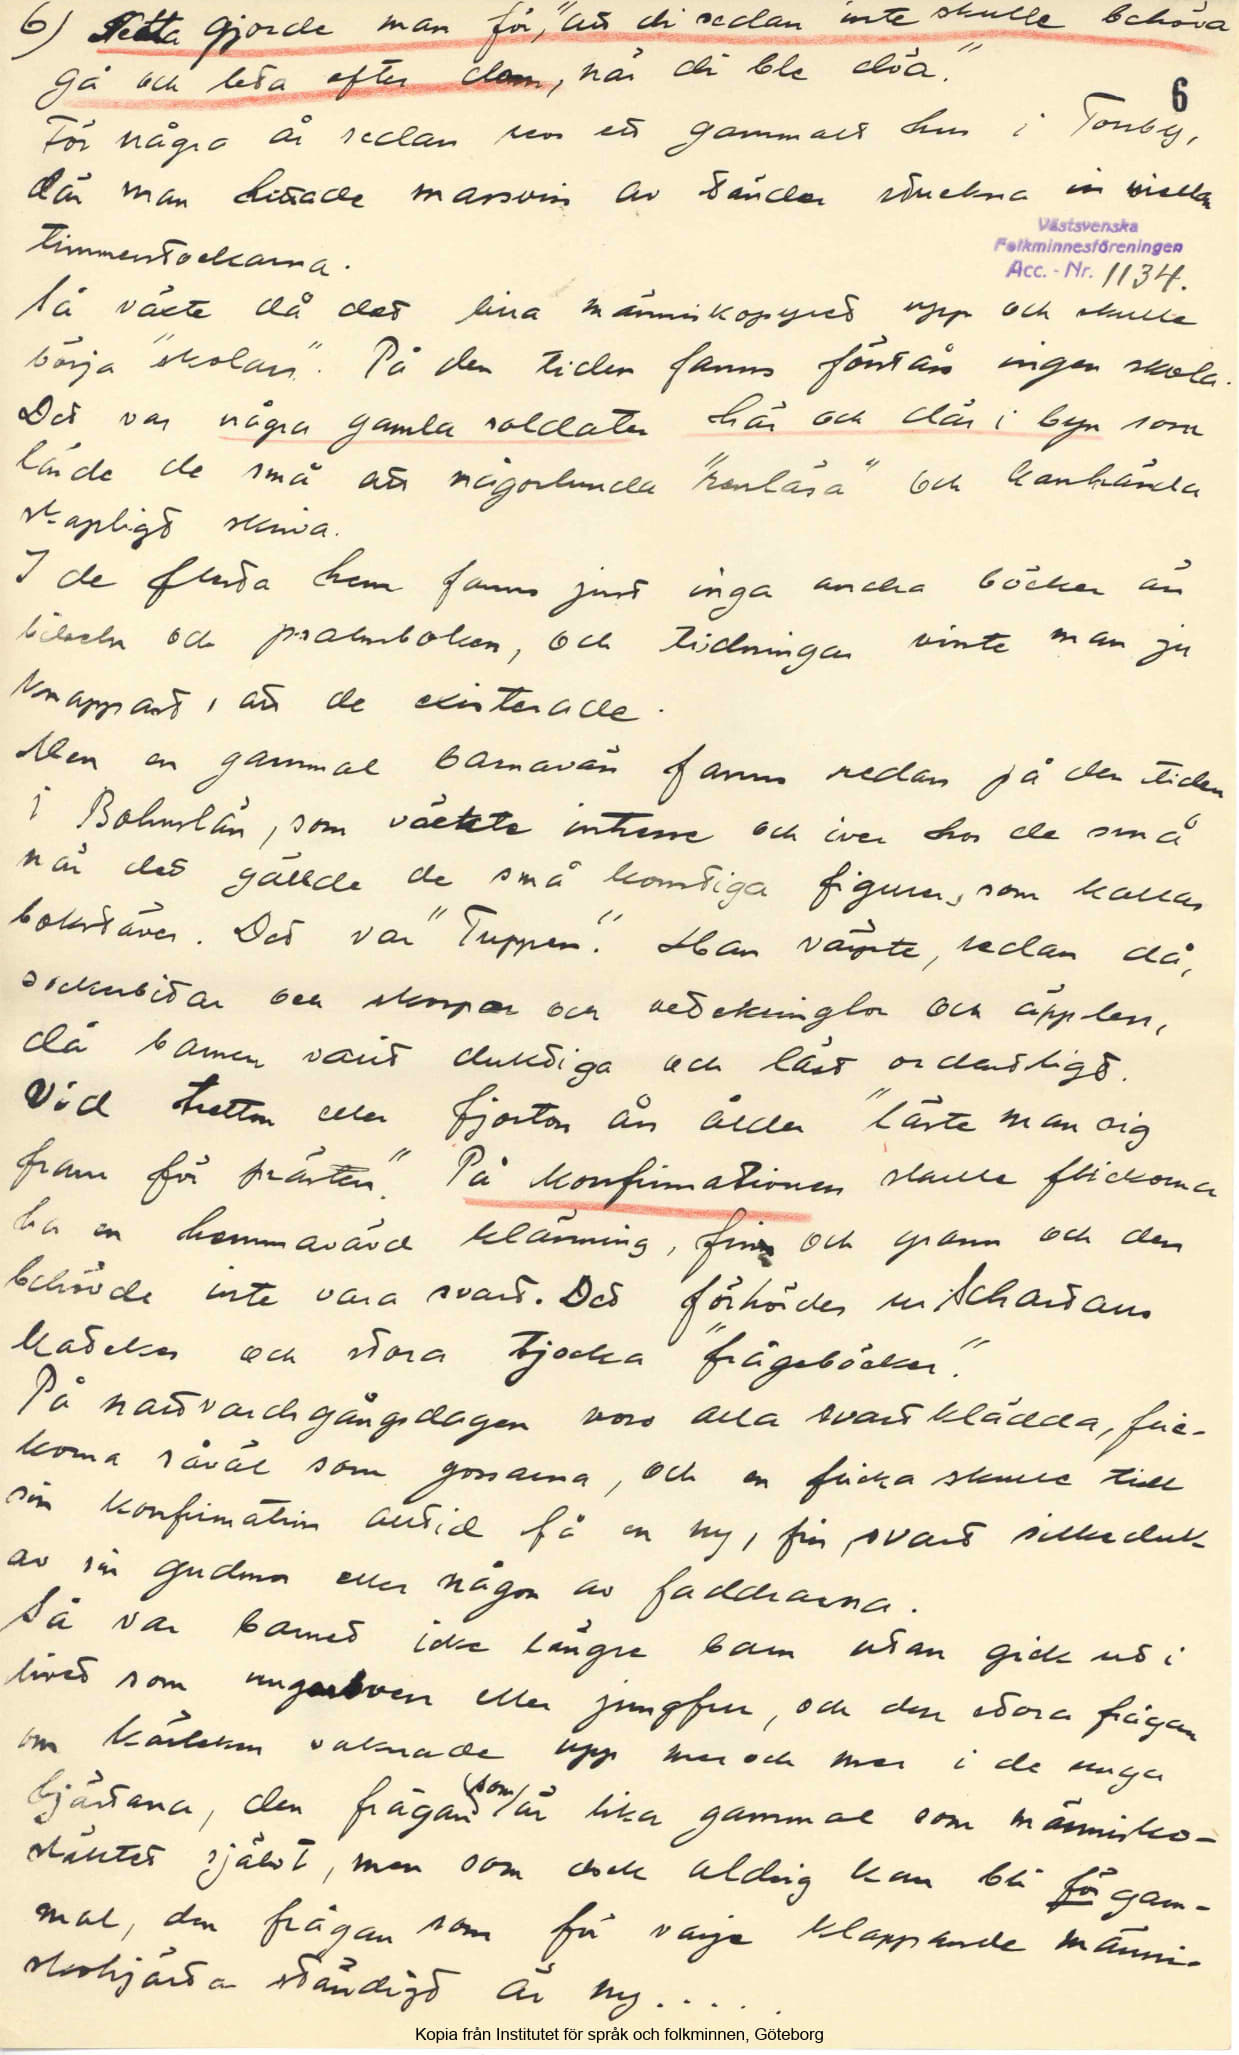 6) Detta gjorde man för, "att di sedan inte skulle behöva
gå och leta efter dom, når di ble döa."
6
För några år sedan revs ett gammalt hus i Torsby,
där man hittade massvis av tänder stuckna in mellan
timmerstockarna.
Västsvenska
Folkminnesföreningen
Acc. - Nr. 1134.
Så växte då det lilla människopyret upp och skulle
börja "skolan". På den tiden fanns förstås ingen skola.
Det var några gamla soldater här och där i byn som
lärde de små att någorlunda "renläsa" och kanhända
skapligt skriva.
I de flesta hem fanns just inga andra böcker än
bibeln och psalmboken, och tidningar visste man ju
knappast, att de existerade.
Men en gammal barnavän fanns redan på den tiden
i Bohuslän, som väckte intresse och iver hos de små
när det gällde de små konstiga figurer, som kallas
bokstäver. Det var "Tuppen". Han värpte, redan då,
sockerbitar och skorpor och vetekringlor och äpplen,
då barnen varit duktiga och läst ordentligt.
Vid tretton eller fjorton års ålder "läste man sig
fram för prästen". På konfirmationen skulle flickorna
ha en hemmavävd klänning, fin och grann och den
behövde inte vara svart. Det förhördes ur Schartaus
katekes och stora tjocka "frågeböcker".
På nattvardsgångsdagen voro alla svartklädda, flic-
korna såväl som gossarna, och en flicka skulle till
sin konfirmation alltid få en ny, fin, svart silkeduk
av sin gudmor eller någon av faddrarna.
Så var barnet icke längre barn utan gick ut i
livet som ungersven eller jungfru, och den stora frågan
om kärleken vaknade upp mer och mer i de unga
hjärtana, den frågan som är lika gammal som människo-
släktet självt, men som dock aldrig kan bli för gam-
mal, den frågan som för varje klappande männi-
skohjärta ständigt är ny.....
Kopia från Institutet för språk och folkminnen, Göteborg